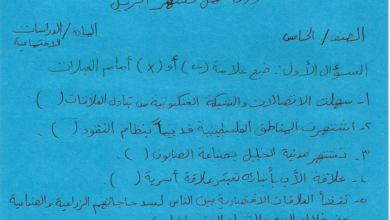 ورقة عمل لشهر ابريل
الصف / الخامس
المادة / الدراسات الاجتماعية
السؤال الأول : ضع علامة (✓) أو (x) أمام العبارات
١- سهلت الاتصالات والشبكة العنكبوتية من تبادل العلاقات ( )
٢- اشتهرت المناطق الفلسطينية قديماً بنظام النقود ( )
٣- تشتهر مدينة الخليل بصناعة الصابون ( ).
٤- علاقة الأب بأبنائه تعتبر علاقة أسرية ( ).
٥- تنشأ العلاقات الاقتصادية بين الناس لسد حاجاتهم الزراعية والصناعية